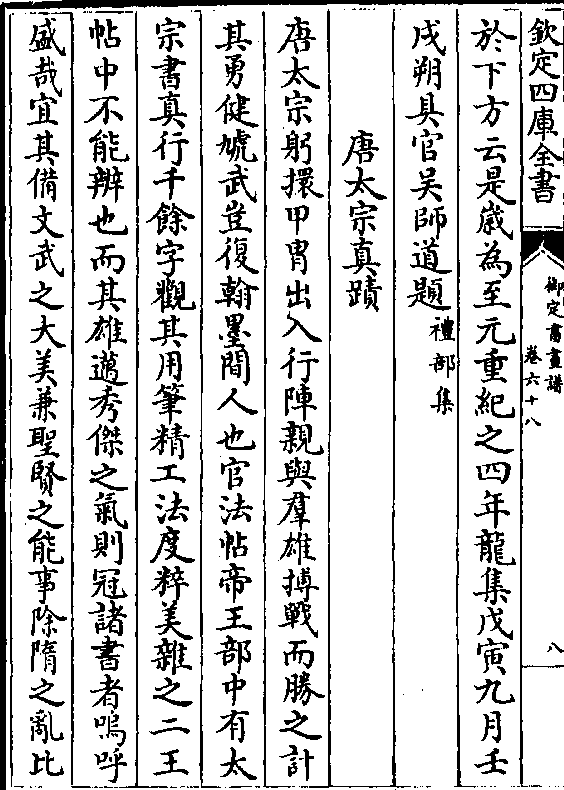 欽定四庫全書
御定書畫譜
卷六十八
八
於下方云是歲為至元重紀之四年龍集戊寅九月壬
戌朔具官吴師道題禮部集
唐太宗真蹟
唐太宗躬擐甲胄出入行陣親與羣雄搏戰而勝之計
其勇健虓武豈復翰墨間人也官法帖帝王部中有太
宗書真行千餘字觀其用筆精工法度粹美雜之二王
帖中不能辨也而其雄邁秀傑之氣則冠諸書者嗚呼
盛哉宜其備文武之大美兼聖賢之能事除隋之亂比